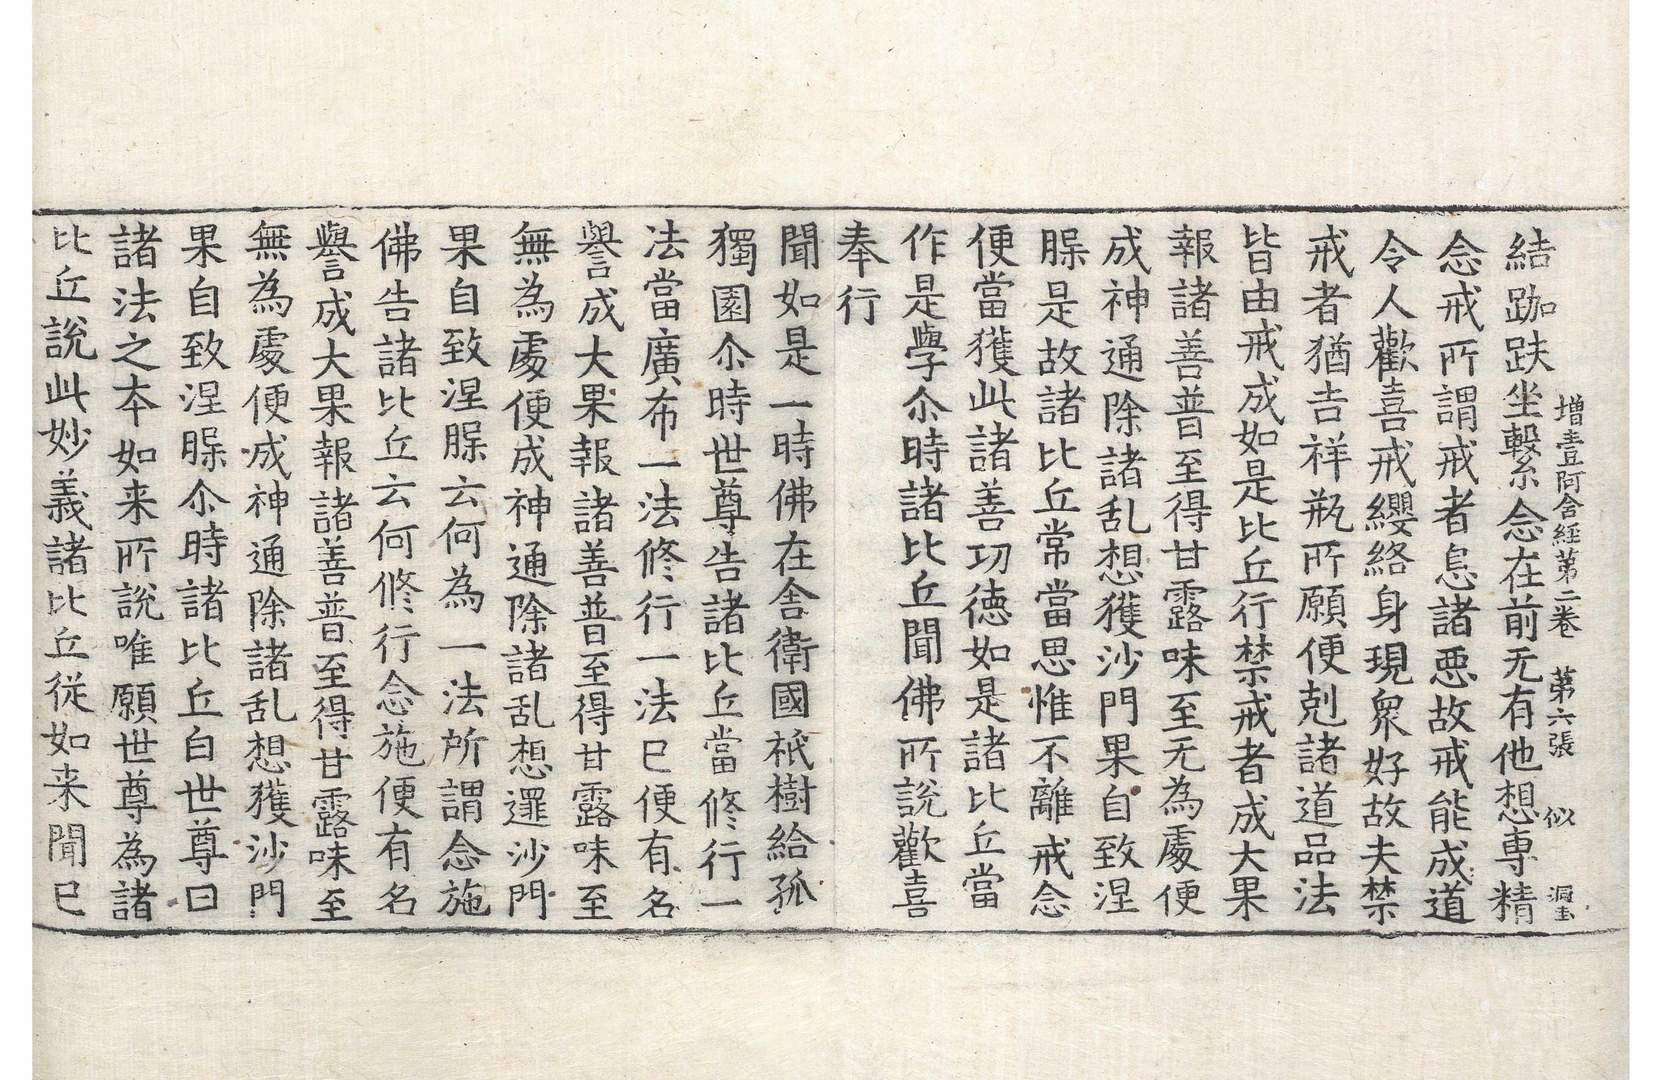 增壹阿含經第二卷　第六張　似
結跏趺坐繫念在前无有他想專精
念戒所謂戒者息諸惡故戒能成道
令人歡喜戒纓絡身現衆好故夫禁
戒者猶吉祥瓶所願便剋諸道品法
皆由戒成如是比丘行禁戒者成大果
報諸善普至得甘露味至无為處便
成神通除諸乱想獲沙門果自致涅
臊是故諸比丘常當思惟不離戒念
便當獲此諸善功德如是諸比丘當
作是學尒時諸比丘聞佛所說歡喜
奉行
聞如是一時佛在舍衛國祇樹給孤
獨園尒時世尊告諸比丘當修行一
法當廣布一法修行一法已便有名
譽成大果報諸善普至得甘露味至
無為處便成神通除諸乱想逮沙門
果自致涅臊云何為一法所謂念施
佛告諸比丘云何修行念施便有名
譽成大果報諸善普至得甘露味至
無為處便成神通除諸乱想獲沙門
果自致涅臊尒時諸比丘白世尊曰
諸法之本如来所說唯願世尊為諸
比丘說此妙義諸比丘從如来聞已